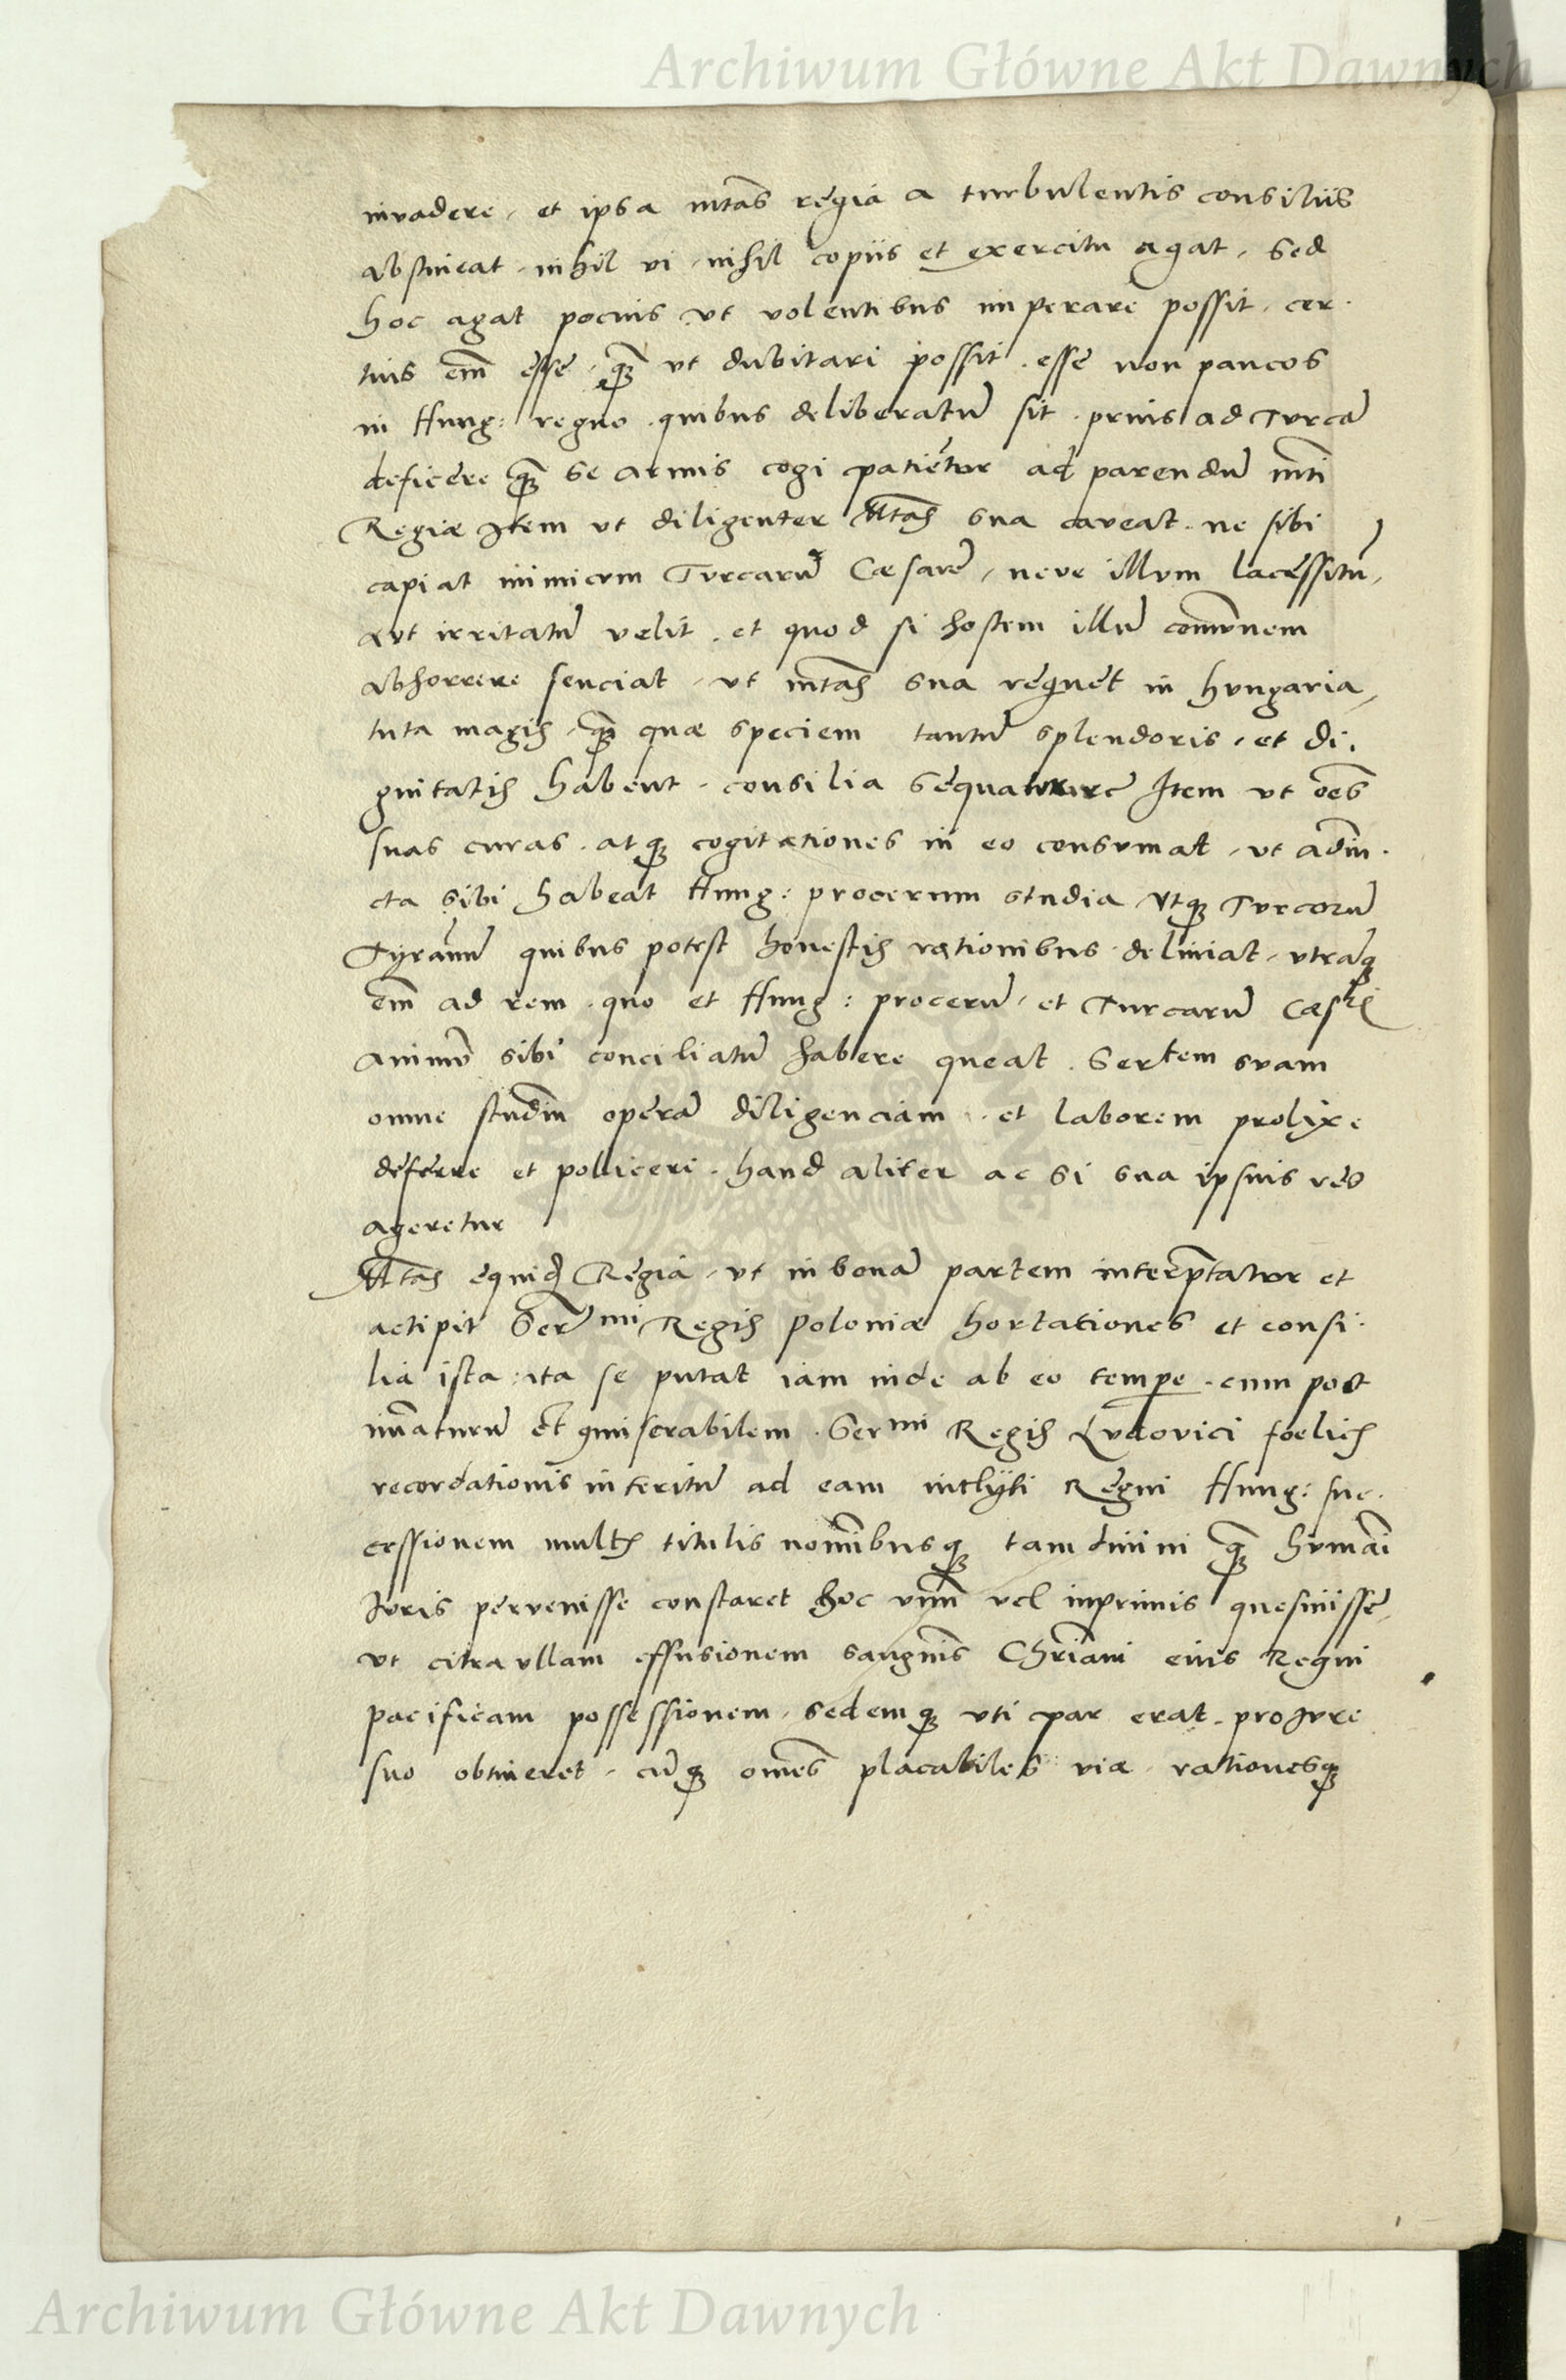 Archiwum Główne Akt Dawnych
invadere, et ipsa mtās regia a turbulentis consiliis
abstineat, nihil vi, nihil copiis et exercitu agat, sed
hoc agat pocius ut volentibus imperare possit, cer-
tius em̄ esse, q̄ ut dubitari possit, esse non paucos
in Hung: regno quibus deliberatū sit, prius ad Turcā
deficere q̄ se armis cogi patiētur ad parendū mti
Regiæ Item ut diligenter Mtas sua caveat, ne sibi
capiat inimicum Turcarū Cæsarē, neve illum lacessitū,
aut irritatū velit, et quod si hostem illū comunem
abhorrere senciat, ut mtas sua regnet in hungaria,
tuta magis, q̄ quæ speciem tantū splendoris, et di-
gnitatis habent, consilia Item ut oēs
suas curas, atq cogitationes in eo consumat, ut adiū-
cta sibi habeat Hung: procerum studia Utq Turcorū
Tyrannū quibus potest honestis rationibus deliniat, utrāq
em̄ ad rem, quo et Hung: procerū, et Turcarū Cæsris
animū sibi conciliatū habere queat. Sertem suam
omne studiū operā diligenciam, et laborem prolixe
deferre et polliceri, haud aliter ac si sua ipsius res
ageretur
Mtas equid Regia, ut in bonā partem interptatur et
accipit Sermi Regis Poloniæ hortationes et consi-
lia ista, ita se putat iam inde ab eo tempe, cum post
imaturū et miserabilem Sermi Regis Ludovici foelicis
recordationis interitū ad eam inclyti Regni Hung: suc-
cessionem multis titulis nominibusq tam divini q̄ humāi
Iuris pervenisse constaret hoc unū vel inprimis quesiuisse,
ut citra ullam effusionem sangnis Chriani eius Regni
pacificam possessionem, sedemq uti par erat, pro Iure
suo obtineret, cūq omēs placabiles viæ, rationesq
Archiwum Główne Akt Dawnych